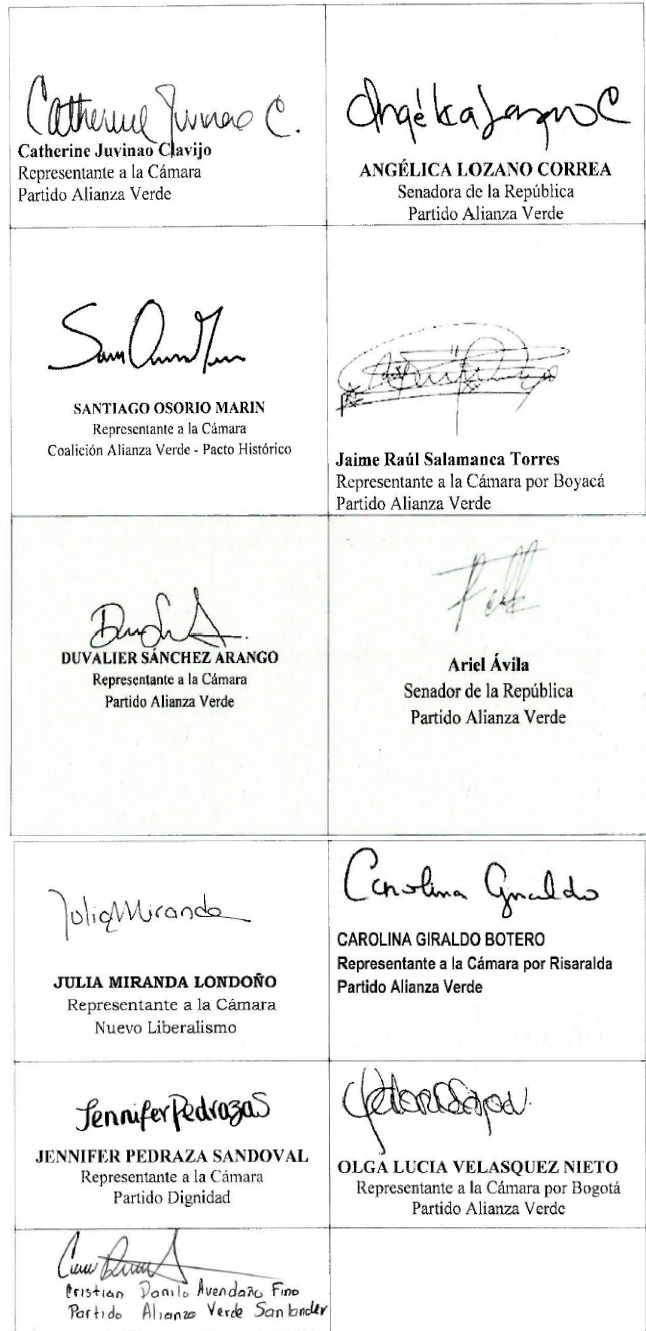 Catherine Juvinao C.
Catherine Juvinao Clavijo
Representante a la Cámara
Partido Alianza Verde
Angélica Lozano C
ANGÉLICA LOZANO CORREA
Senadora de la República
Partido Alianza Verde
SANTIAGO OSORIO MARIN
Representante a la Cámara
Coalición Alianza Verde - Pacto Histórico
Jaime Raúl Salamanca Torres
Representante a la Cámara por Boyacá
Partido Alianza Verde
DUVALIER SÁNCHEZ ARANGO
Representante a la Cámara
Partido Alianza Verde
Ariel Ávila
Senador de la República
Partido Alianza Verde
Julia Miranda
JULIA MIRANDA LONDOÑO
Representante a la Cámara
Nuevo Liberalismo
Carolina Giraldo
CAROLINA GIRALDO BOTERO
Representante a la Cámara por Risaralda
Partido Alianza Verde
Jennifer Pedraza S
JENNIFER PEDRAZA SANDOVAL
Representante a la Cámara
Partido Dignidad
OLGA LUCIA VELASQUEZ NIETO
Representante a la Cámara por Bogotá
Partido Alianza Verde
Cristian Danilo Avendaño Fino
Partido Alianza Verde Santander